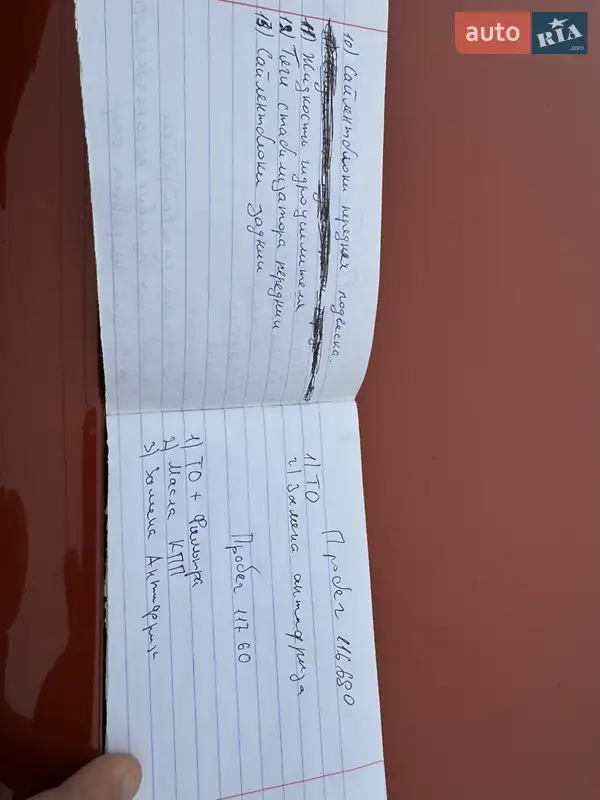 10) Сайлентблоки передняя подвеска.
11) Жидкости гидроусилителя
12) Тяги стабилизатора передний
13) Сайлентблоки задний
Пробег 116 680
1) ТО
2) Замена антифриза
Пробег 117 60
1) ТО + Фильтра
2) Масла КПП
3) Замена Антифриз
auto RIA .com